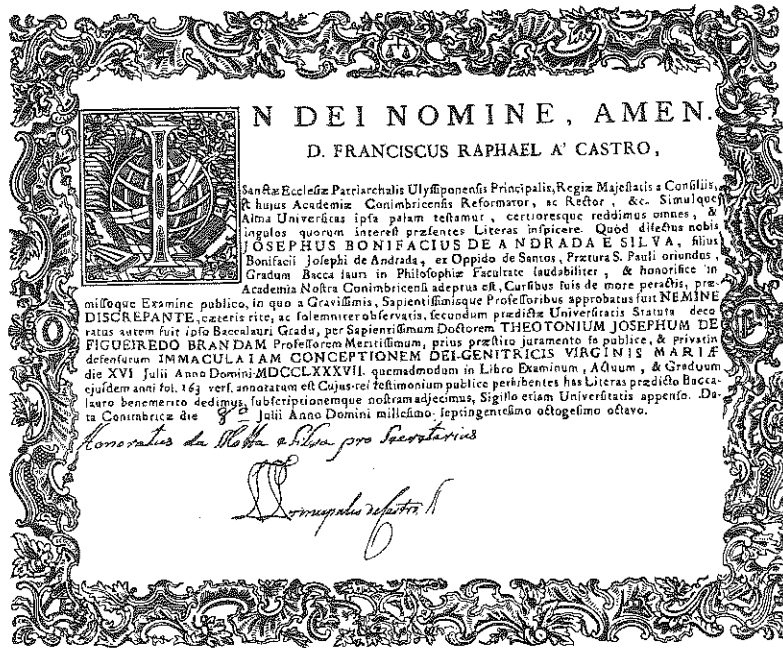 IN DEI NOMINE, AMEN.
D. FRANCISCUS RAPHAEL A' CASTRO,
Sanctæ Ecclesiæ Patriarchalis Ulyssiponensis Principalis, Regiæ Majestatis a Consiliis,
st hujus Academiæ Conimbricensis Reformator, ac Rector, &c. Simulque
Alma Universitas ipsa palam testamur, certioresque reddimus omnes, &
ingulos quorum interest præsentes Literas inspicere. Quòd dilectus nobis
JOSEPHUS BONIFACIUS DE ANDRADA E SILVA, filius
Bonifacii Josephi de Andrada, ex Oppido de Santos, Prætura S. Pauli oriundus,
Gradum Baccalaurii in Philosophiæ Facultate laudabiliter, & honorifice in
Academia Nostra Conimbricensi adeptus est, Cursibus suis de more peractis, præ-
missoque Examine publico, in quo a Gravissimis, Sapientissimisque Professoribus approbatus fuit NEMINE
DISCREPANTE, cæteris rite, ac solemniter observatis, secundum prædictæ Universitatis Statuta deco
ratus autem fuit ipso Baccalauri Gradu, per Sapientissimum Doctorem THEOTONIUM JOSEPHUM DE
FIGUEIREDO BRANDAM Professorem Meritissimum, prius præstito juramento se publice, & privatim
defensurum IMMACULATAM CONCEPTIONEM DEI-GENITRICIS VIRGINIS MARIÆ
die XVI Julii Anno Domini MDCCLXXXVII. quemadmodum in Libro Examinum, Actuum, & Graduum
ejusdem anni fol. 163 vers. annotatum est Cujus rei testimonium publice perhibentes has Literas prædicto Bacca-
lauro benemerito dedimus, subscriptionemque nostram adjecimus, Sigillo etiam Universitatis appenso. Da-
ta Conimbricæ die 8º Julii Anno Domini millesimo septingentesimo octogesimo octavo.
Honoratus da Motta e Silva pro Secretarius
Principalis de Castro R